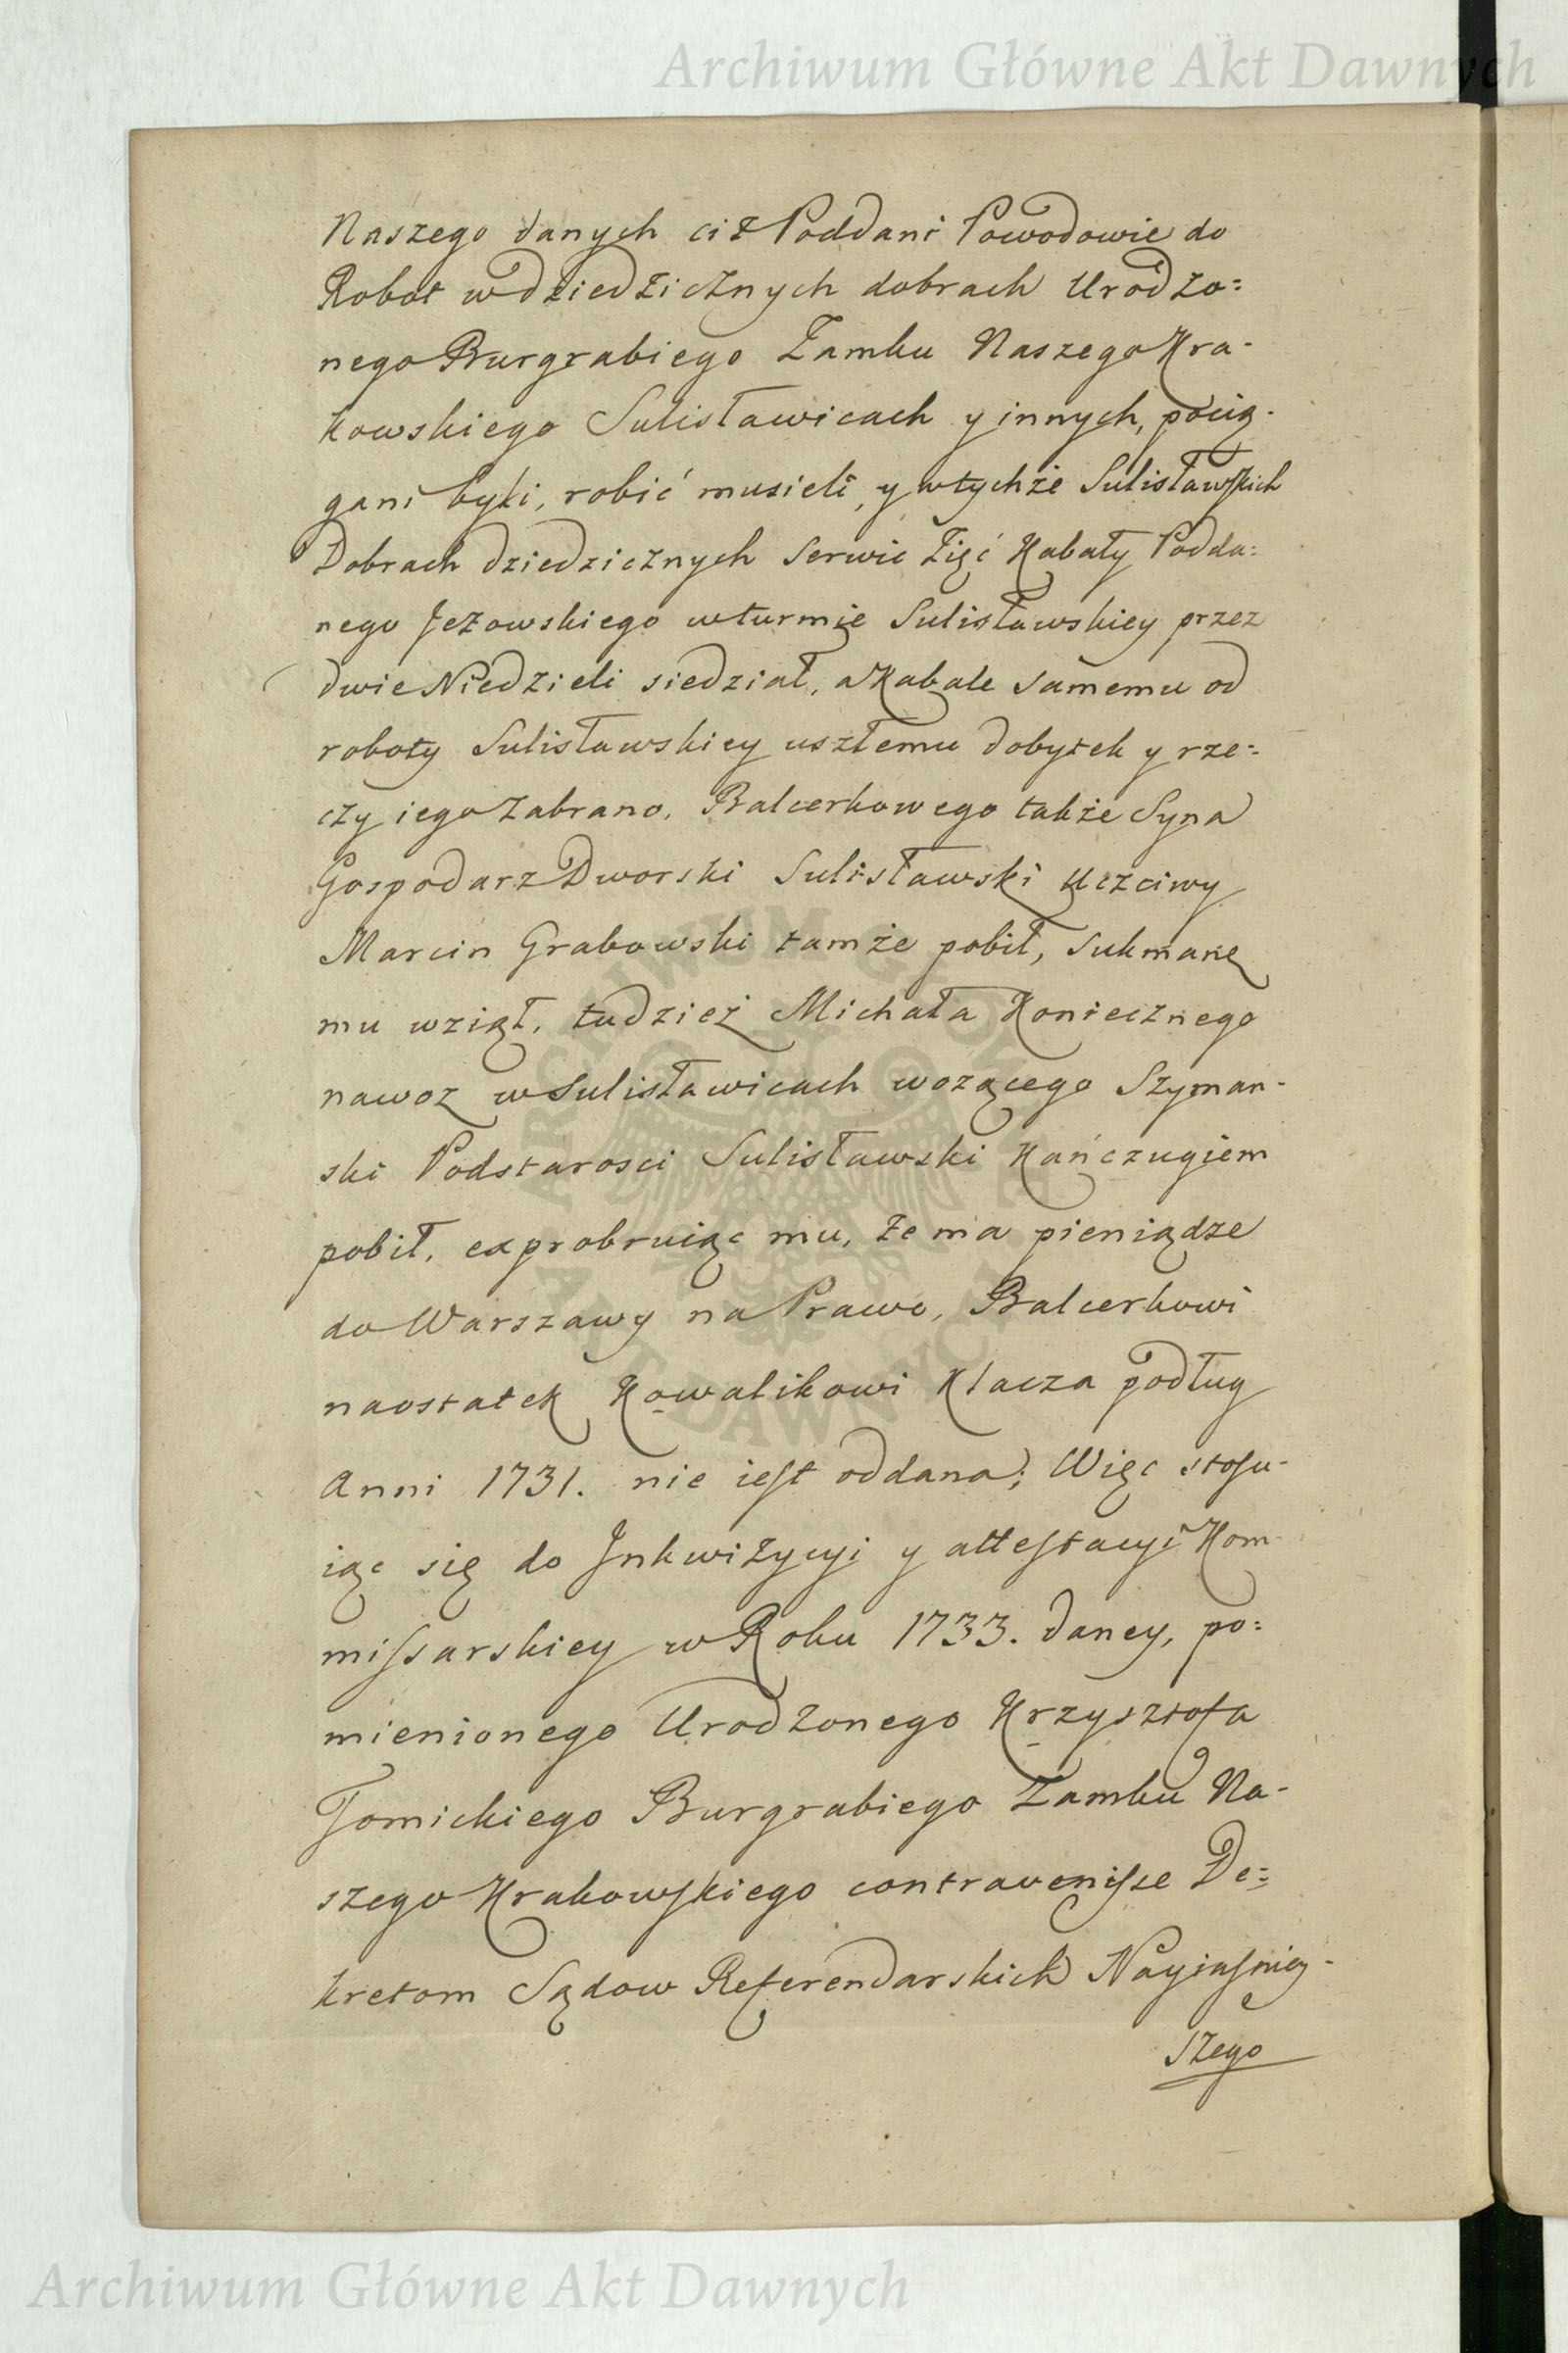 Archiwum Główne Akt Dawnych
Naszego danych ciż Poddani Powodowie do
Robot w dziedzicznych dobrach Urodzo=
nego Burgrabiego Zamku Naszego Kra-
kowskiego Sulisławicach y innych, pocią-
gani byli, robić musieli, y w tychże Sulisławskich
Dobrach dziedzicznych Serwic Zięć Kabały Podda=
nego Jeżowskiego w turmie Sulisławskiey przez
dwie Niedzieli siedział, a Kabale samemu od
roboty Sulisławskiey uszłemu dobytek y rze=
czy iego zabrano, Balcerkowego także Syna
Gospodarz Dworski Sulisławski Uczciwy
Marcin Grabowski tamże pobił, Sukmanę
mu wziął, tudzież Michała Koniecznego
nawoz w Sulisławicach wozącego Szyman-
ski Podstarosci Sulisławski Kańczugiem
pobił, exprobruiąc mu, że ma pieniądze
do Warszawy na Prawo, Balcerkowi
naostatek Kowalikowi Klacza podług
Anni 1731. nie iest oddana; Więc stosu-
iąc się do Inkwizycyi y attestacyi Kom-
missarskiey w Roku 1733. daney, po=
mienionego Urodzonego Krzysztofa
Tomickiego Burgrabiego Zamku Na-
szego Krakowskiego contravenisse De=
kretom Sądow Referendarskich Nayiasniey-
szego
ARCHIWUM GŁÓWNE AKT DAWNYCH
Archiwum Główne Akt Dawnych